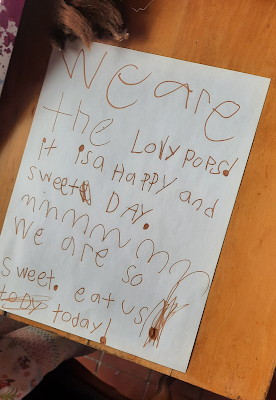 We are
the Lollypops!
it is a HAPPY and
sweet DAY.
mmmmmmm
We are so
sweet. eat us
today!